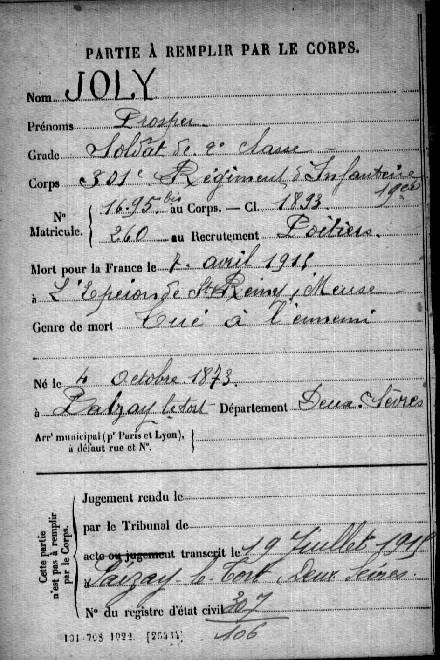 PARTIE À REMPLIR PAR LE CORPS.
Nom JOLY
Prénoms Prosper
Grade Soldat de 2e classe
Corps 301e Régiment d'Infanterie
N° Matricule. 1695 bis au Corps. — Cl. 1893
260 au Recrutement Poitiers
Mort pour la France le 7 avril 1915
à L'Eperon de St Remy, Meuse
Genre de mort Tué à l'ennemi
Né le 4 octobre 1873
à Paizay le tort Département Deux-Sèvres
Arrt municipal (pr Paris et Lyon),
à défaut rue et N°.
Cette partie
n'est pas à remplir
par le Corps.
Jugement rendu le
par le Tribunal de
acte ou jugement transcrit le 19 Juillet 1915
à Paizay-le-Tort, Deux Sèvres.
N° du registre d'état civil 307
106
101-708 1921. [26314]